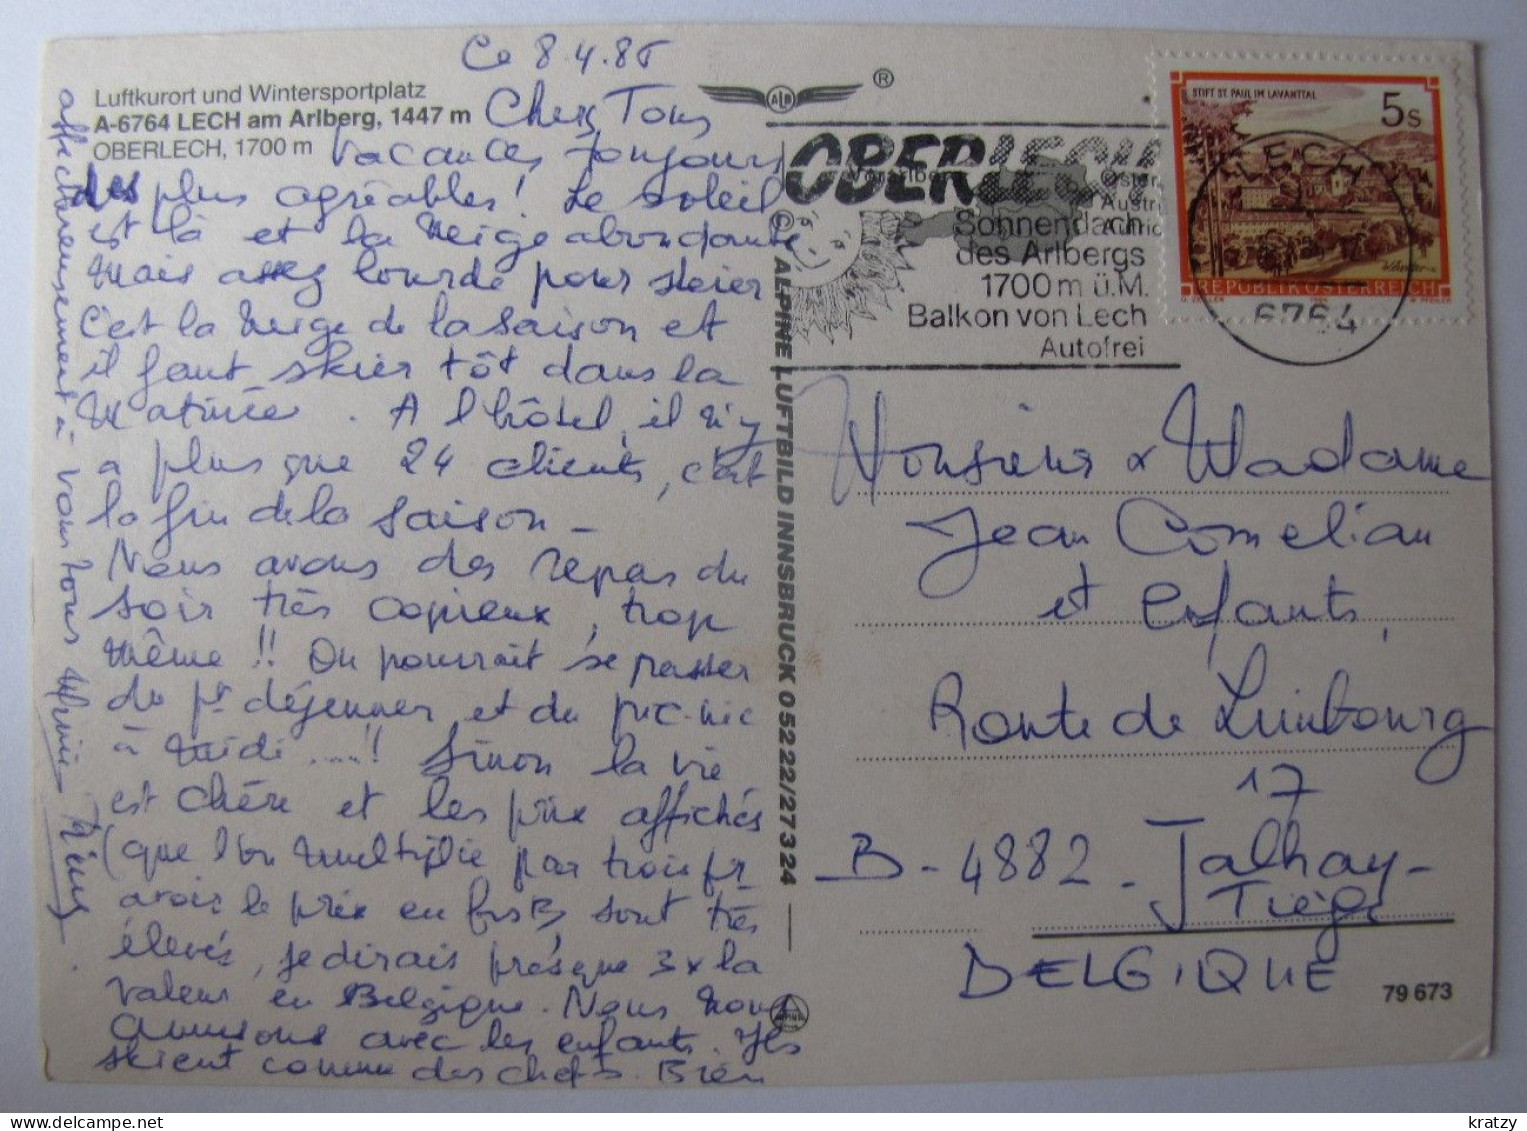 Ce 8.4.86
Luftkurort und Wintersportplatz
A-6764 LECH am Arlberg, 1447 m
OBERLECH, 1700 m
Chers Tous
Vacances toujours
des plus agréables! Le soleil
est là et la neige abondante
mais assez lourde pour skier
c'est la neige de la saison et
il faut skier tôt dans la
matinée. A l'hôtel, il n'y
a plus que 24 clients, c'est
la fin de la saison -
Nous avons des repas du
soir très copieux, trop
même!! On pourrait se passer
du pt déjeuner et du pic-nic
à midi ....!! Sinon la vie
est chère et les prix affichés
(que l'on multiplie par trois pr
avoir le prix en frs B) sont très
élevés, je dirais presque 3x la
valeur en Belgique. Nous nous
amusons avec les enfants. Ils
skient comme des chefs. Bien
affectueusement à vous tous
® ALB
OBERLECH
Sonnendach
des Arlbergs
1700 m ü.M.
Balkon von Lech
Autofrei
STIFT ST. PAUL IM LAVANTTAL
5 S
REPUBLIK ÖSTERREICH
LECH
6764
© ALPINE LUFTBILD INNSBRUCK 05222/27324
Monsieur & Madame
Jean Cornelian
et enfants,
Route de Limbourg
17
B-4882 - Jalhay-
Tiège
BELGIQUE
79 673
kratzy